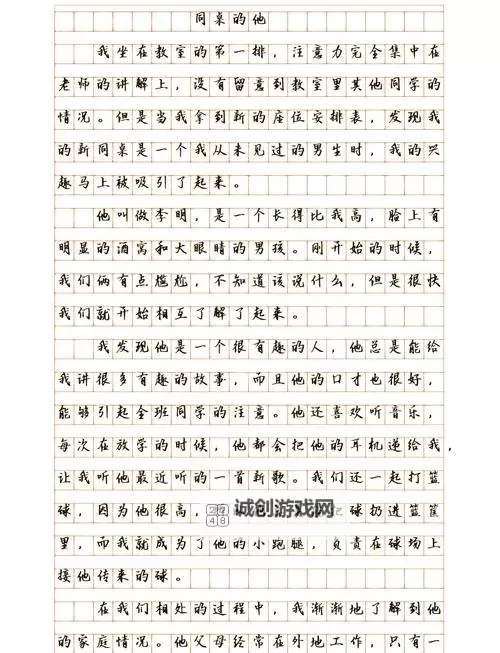 同桌的他
我坐在教室的第一排，注意力完全集中在
老师的讲解上，没有留意到教室里其他同学的
情况。但是当我拿到新的座位安排表，发现我
的新同桌是一个我从未见过的男生时，我的兴
趣马上被吸引了起来。
他叫做李明，是一个长得比我高，脸上有
明显的酒窝和大眼睛的男孩。刚开始的时候，
我们俩有点尴尬，不知道该说什么，但是很快
我们就开始相互了解了起来。
我发现他是一个很有趣的人，他总是能给
我讲很多有趣的故事，而且他的口才也很好，
能够引起全班同学的注意。他还喜欢听音乐，
每次在放学的时候，他都会把他的耳机递给我，
让我听他最近听的一首新歌。我们还一起打篮
球，因为他很高，诚创游戏网记球扔进篮筐
里，而我就成为了他的小跑腿，负责在球场上
接他传来的球。
在我们相处的过程中，我渐渐地了解到他
的家庭情况。他父母经常在外地工作，只有一